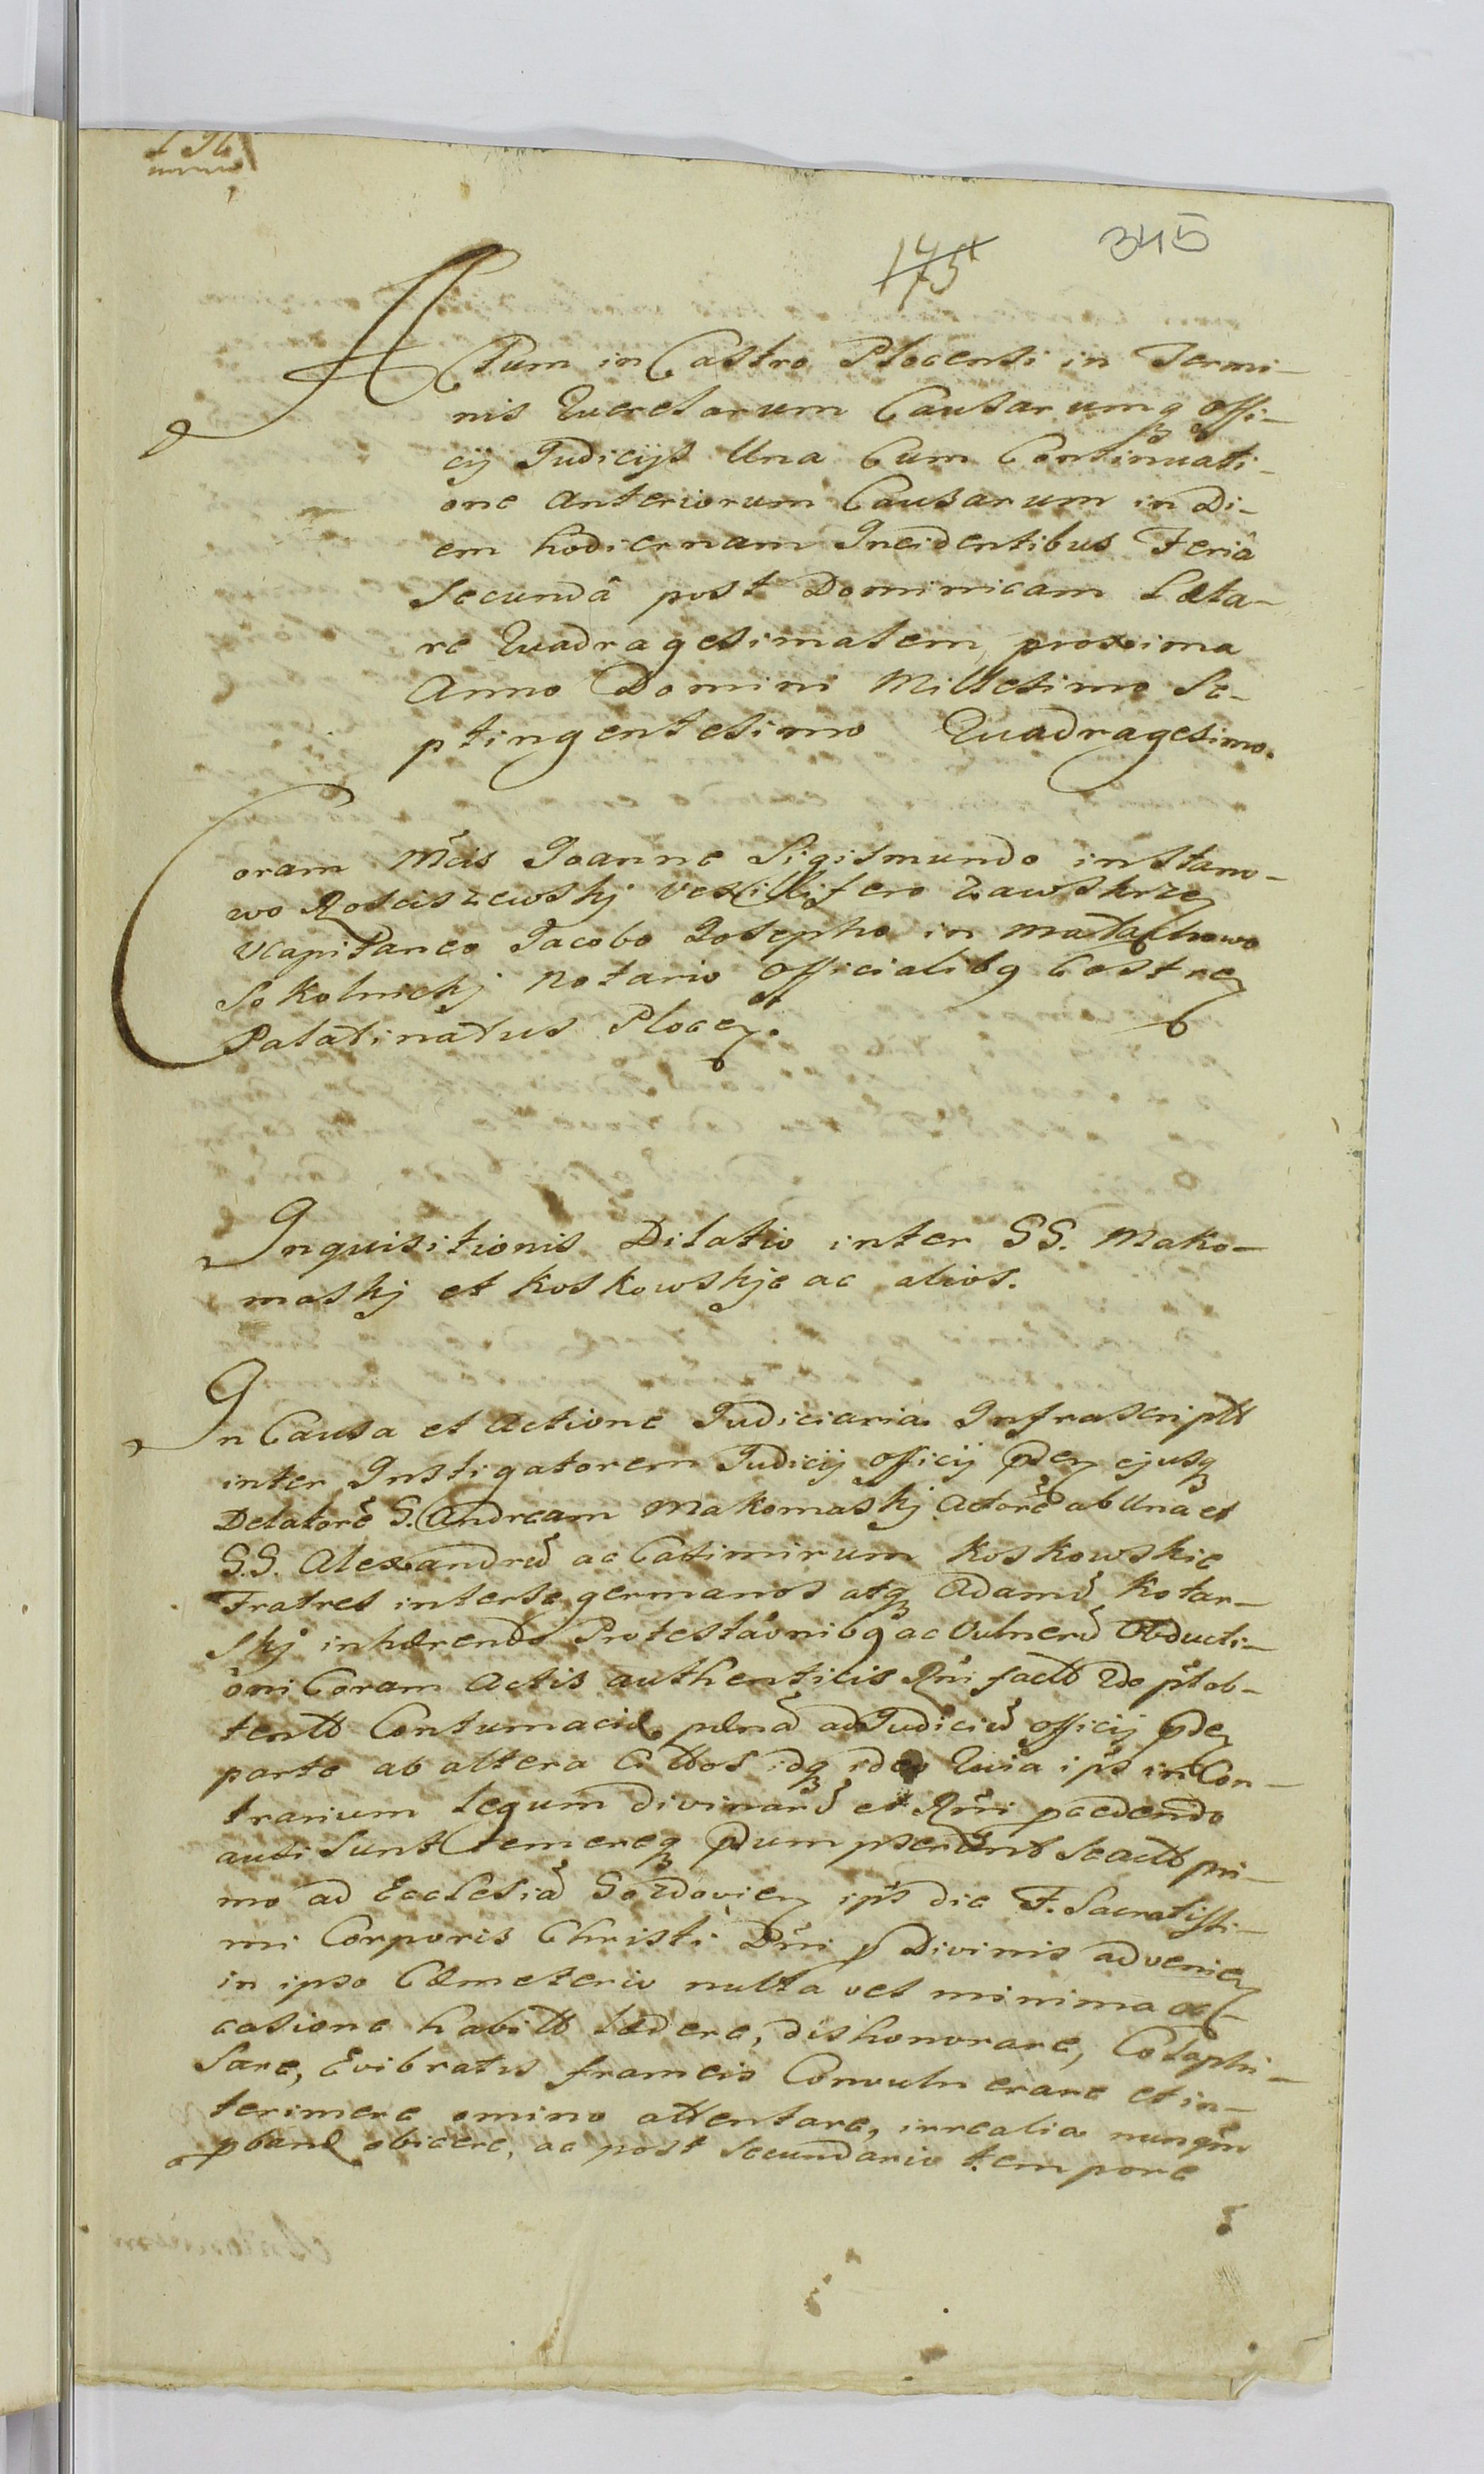 175
345
Actum in Castro Plocensi in Termi-
nis Querelarum Causarumq offi-
cij Judicijs Una Cum Continuati-
one Anteriorum Causarum in Di-
em hodiernam Incidentibus Feriâ
Secundâ post Dominicam Læta-
re Quadragesimalem proxima
Anno Domini Millesimo Se-
ptingentesimo Quadragesimo.
Coram Mcis Joanne Sigismundo in Stano-
wo Rosciszewskj Vexillifero Zawskrzen
VCapitaneo Jacobo Josepho in Małachowo
Sokolnickj Notario Officialibq Castren
Palatinatus Plocen.
Inquisitionis Dilatio inter GG. Mako-
maskj et Koskowskje ac alios.
In Causa et Actione Judiciaria Infrascriptt
inter Instigatorem Judicij officij pden ejusq
Delatorē G. Andream Makomaskj Actorē ab Una et
G.G. Alexandrū ac Casimirum Koskowskie
Fratres interse germanos atq Adamū Kotar-
skj inhærendo Protestaõnibq ac Vulnerū Obducti-
oni Coram Actis authenticis Rñi factt
tentt Contumaciæ pænā ad Judiciū officij pden
parte ab altera Cittos idq ideo Quia ipsi in Con-
trarium legum divinarū et Rñi pcedendo
ausi sunt temereq psumpserunt seactt pri-
mo ad Ecclesiā Gozdovien ipso die F. Sacratissi-
mi Corporis Christi Dñi p Divinis advenien
in ipso Cæmeterio nulla vel minima oc-
casione habitt lædere, dishonorare, Colaphi-
sare, Evibratis frameis Convulnerare et in-
terimere omino attentare, irrealia nunqm
pbanda obicere, ac post secundario tempore